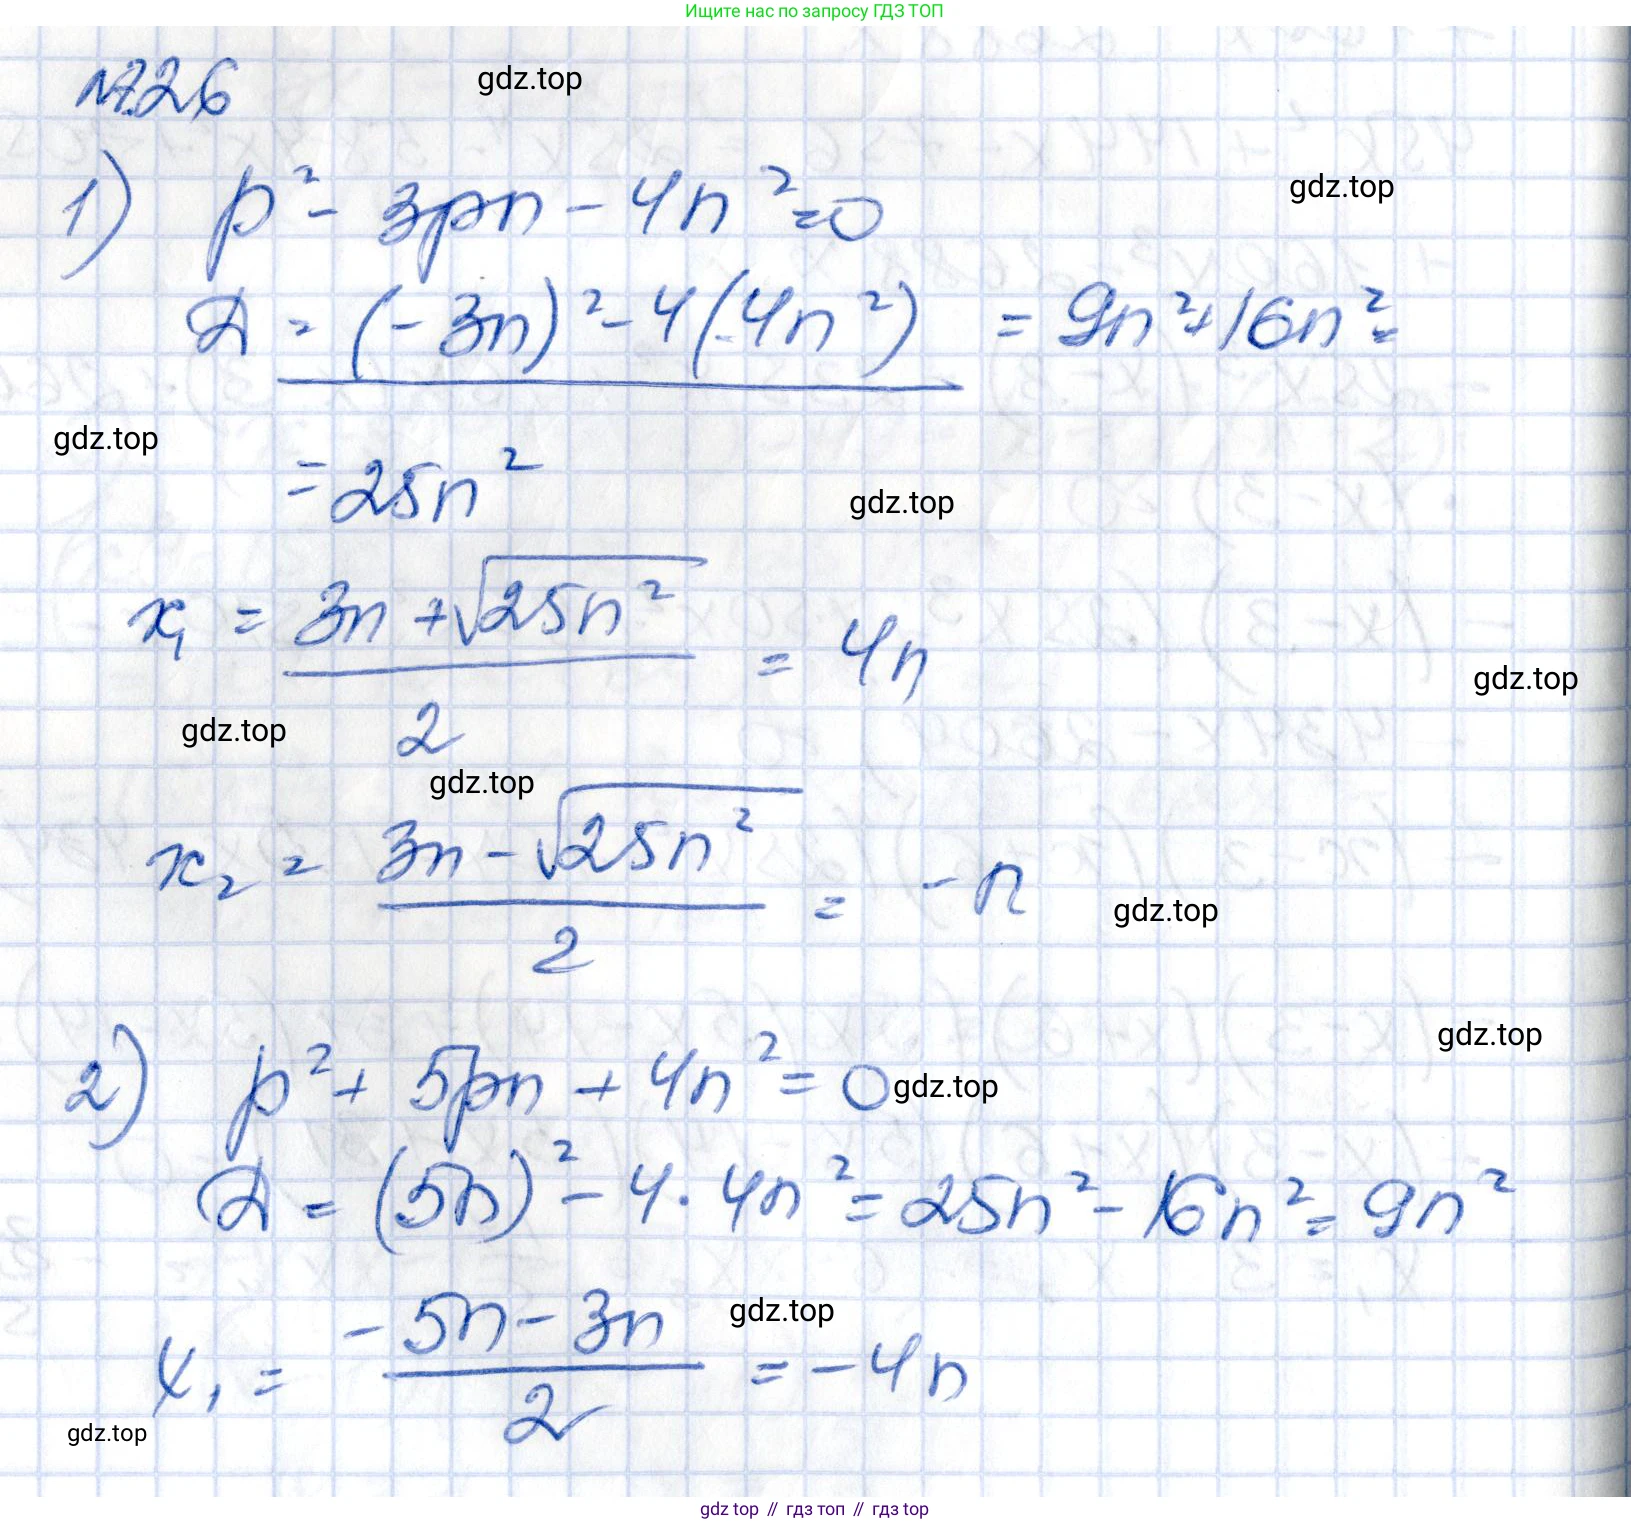 Ищите нас по запросу ГДЗ ТОП
№726
gdz.top
1) p² - 3pn - 4n² = 0
gdz.top
D = (-3n)² - 4(-4n²) = 9n² + 16n² =
gdz.top
= 25n²
gdz.top
x₁ = (3n + √25n²)/2 = 4n
gdz.top
gdz.top
gdz.top
x₂ = (3n - √25n²)/2 = -n
gdz.top
gdz.top
2) p² + 5pn + 4n² = 0
gdz.top
D = (5n)² - 4 · 4n² = 25n² - 16n² = 9n²
gdz.top
x₁ = (-5n - 3n)/2 = -4n
gdz.top
gdz top // гдз топ // гдз top